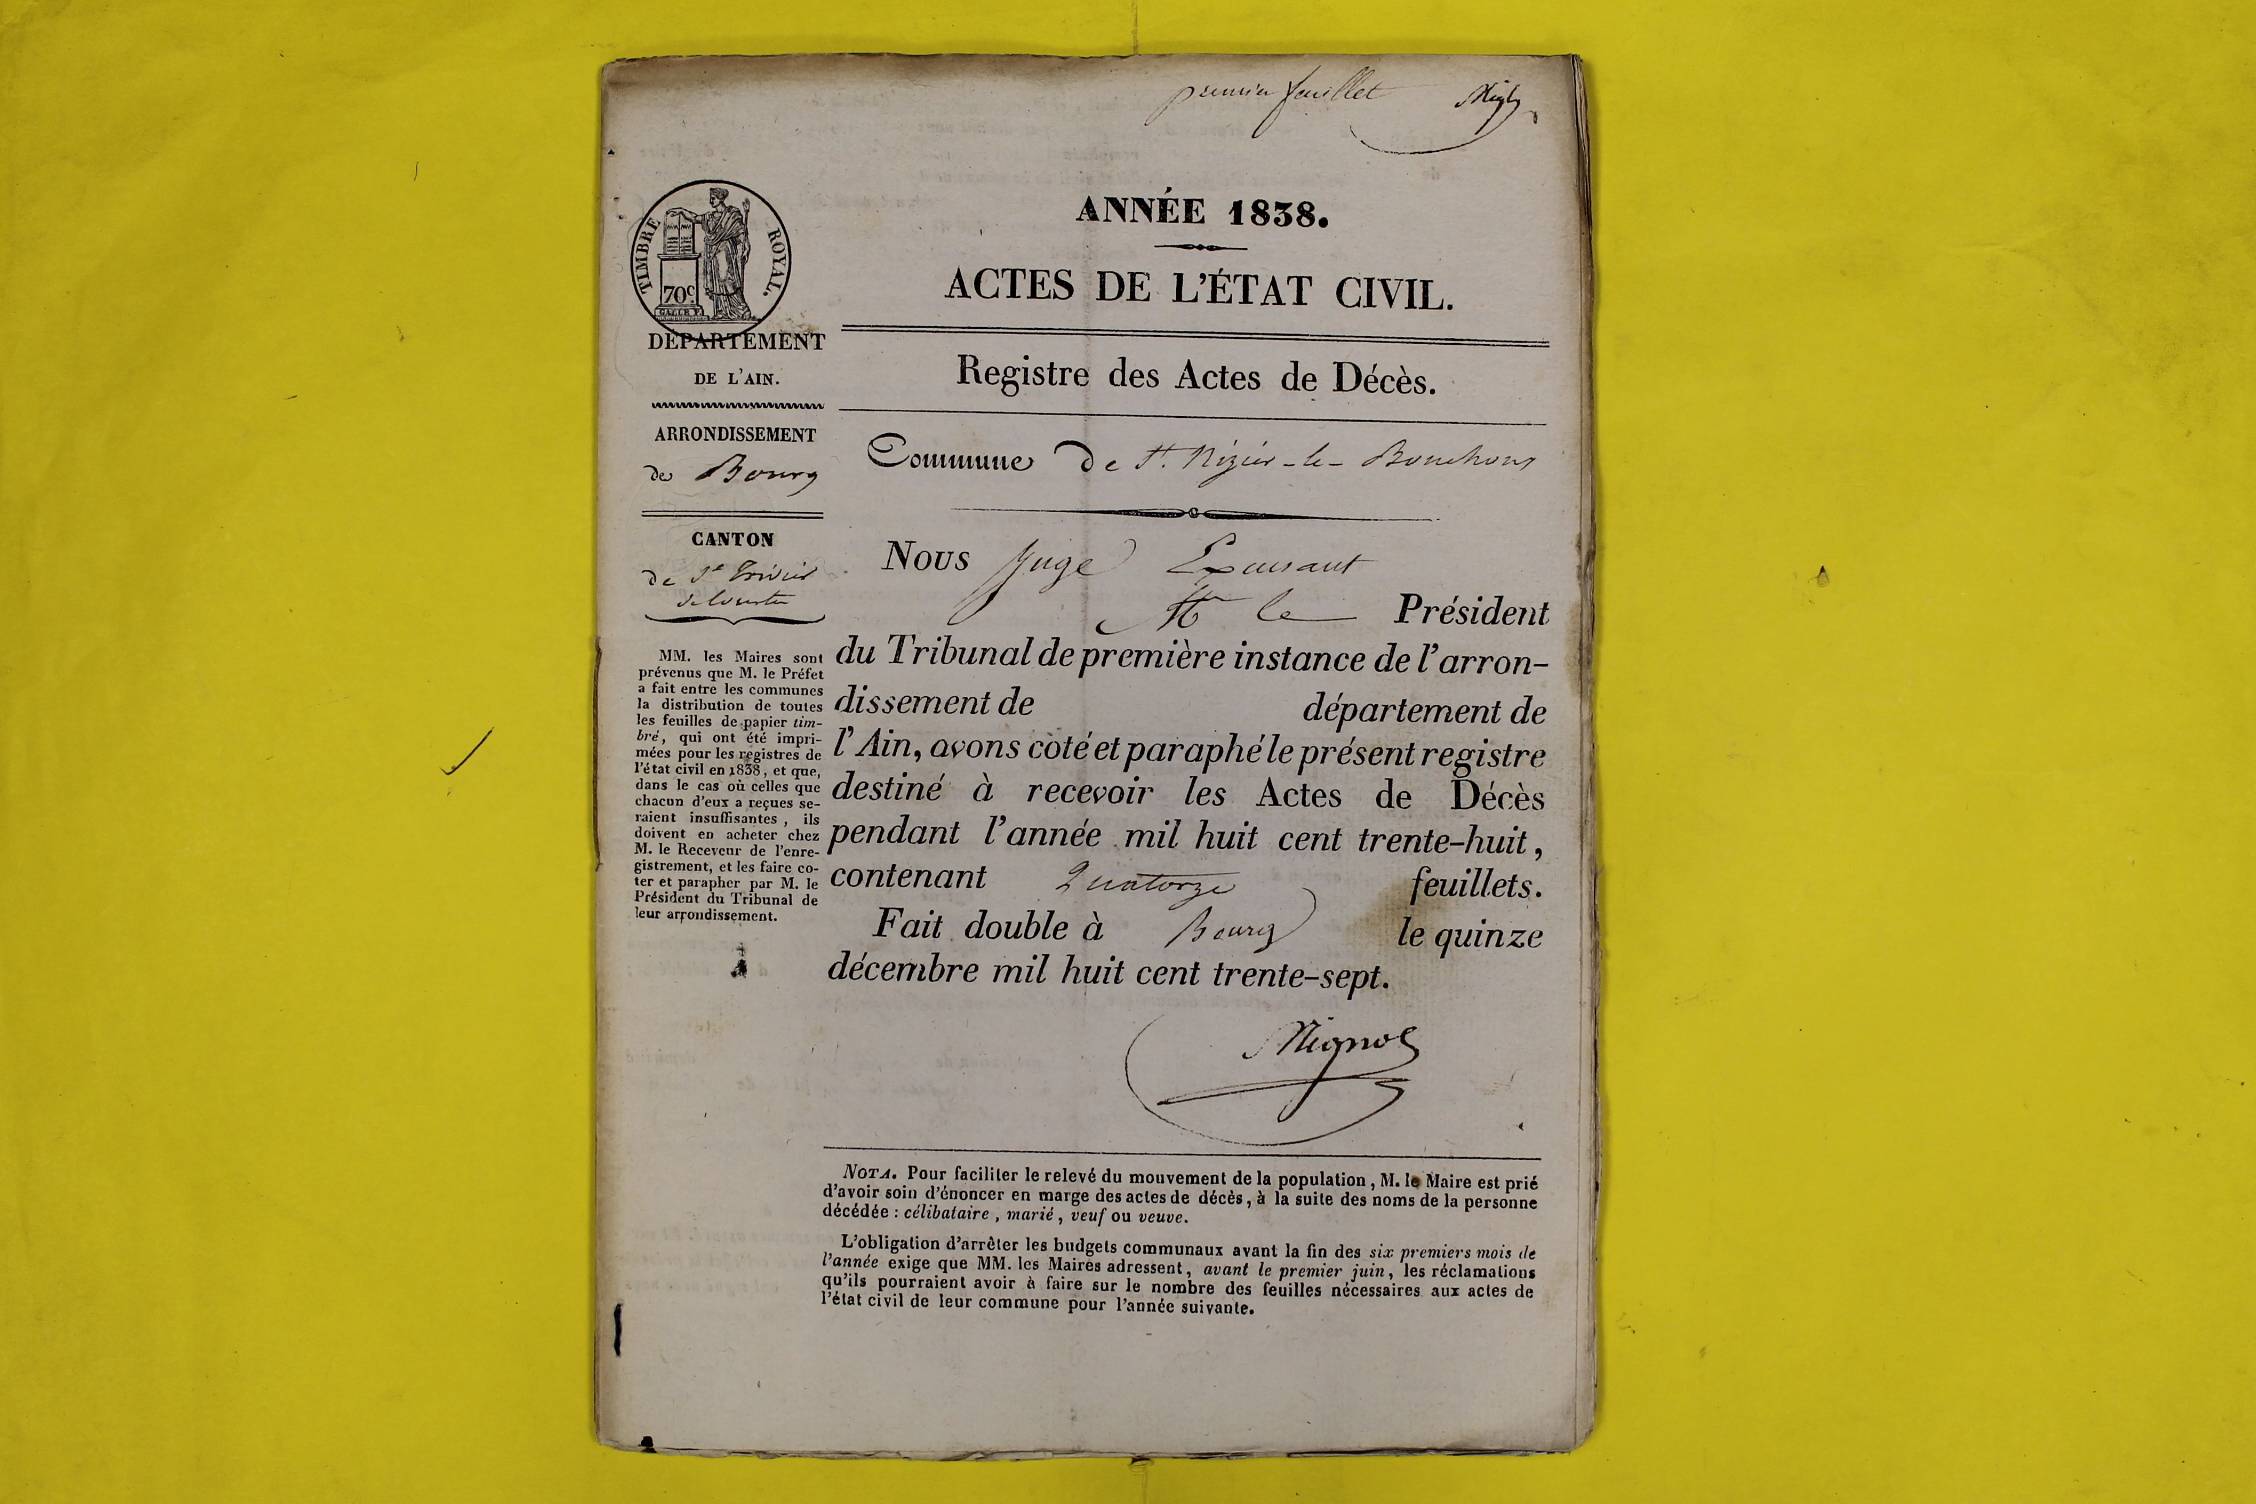 premier feuillet
ANNÉE 1838.
ACTES DE L'ÉTAT CIVIL.
Registre des Actes de Décès.
TIMBRE ROYAL.
70c.
DÉPARTEMENT
DE L'AIN.
ARRONDISSEMENT
de Bourg
CANTON
de St Trivier
de Courtes
MM. les Maires sont
prévenus que M. le Préfet
a fait entre les communes
la distribution de toutes
les feuilles de papier tim-
bré, qui ont été impri-
mées pour les registres de
l'état civil en 1838, et que,
dans le cas où celles que
chacun d'eux a reçues se-
raient insuffisantes, ils
doivent en acheter chez
M. le Receveur de l'enre-
gistrement, et les faire co-
ter et parapher par M. le
Président du Tribunal de
leur arrondissement.
Commune De St. Nizier-le-Bouchoux
NOUS Juge Exerçant
le Président
du Tribunal de première instance de l'arron-
dissement de département de
l'Ain, avons coté et paraphé le présent registre
destiné à recevoir les Actes de Décès
pendant l'année mil huit cent trente-huit,
contenant Quatorze feuillets.
Fait double à Bourg le quinze
décembre mil huit cent trente-sept.
NOTA. Pour faciliter le relevé du mouvement de la population, M. le Maire est prié
d'avoir soin d'énoncer en marge des actes de décès, à la suite des noms de la personne
décédée : célibataire, marié, veuf ou veuve.
L'obligation d'arrêter les budgets communaux avant la fin des six premiers mois de
l'année exige que MM. les Maires adressent, avant le premier juin, les réclamations
qu'ils pourraient avoir à faire sur le nombre des feuilles nécessaires aux actes de
l'état civil de leur commune pour l'année suivante.